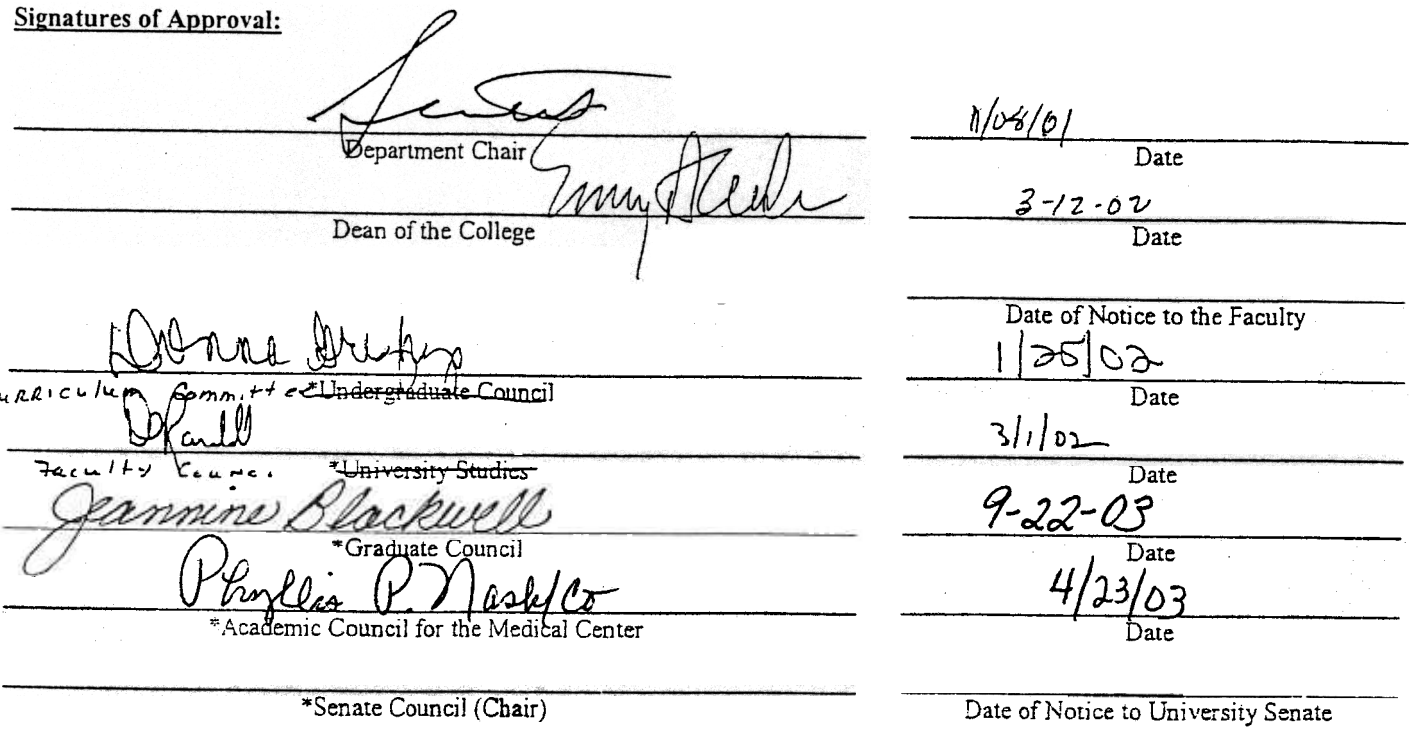 Signatures of Approval:
11/08/01
Department Chair Date
3-12-02
Dean of the College Date
Date of Notice to the Faculty
1/25/02
Curriculum Committee *Undergraduate Council Date
D Randall 3/1/02
Faculty Counc. *University Studies Date
Jeannine Blackwell 9-22-03
*Graduate Council Date
Phyllis P. Nash/co 4/23/03
*Academic Council for the Medical Center Date
*Senate Council (Chair) Date of Notice to University Senate